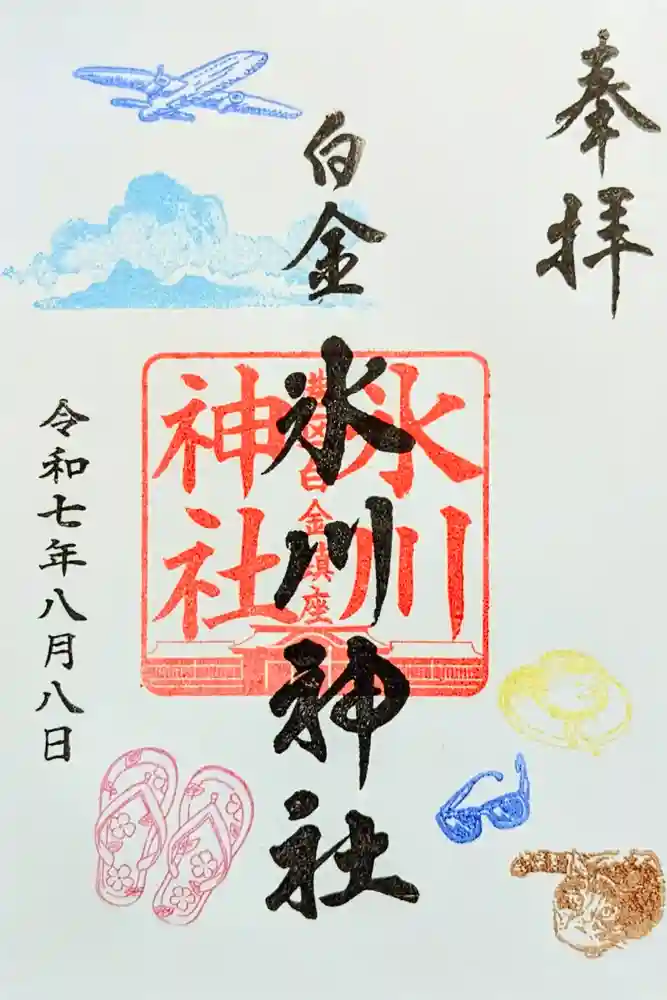 奉拝
白金
氷川神社
氷川
神社
白金鎮座
令和七年八月八日